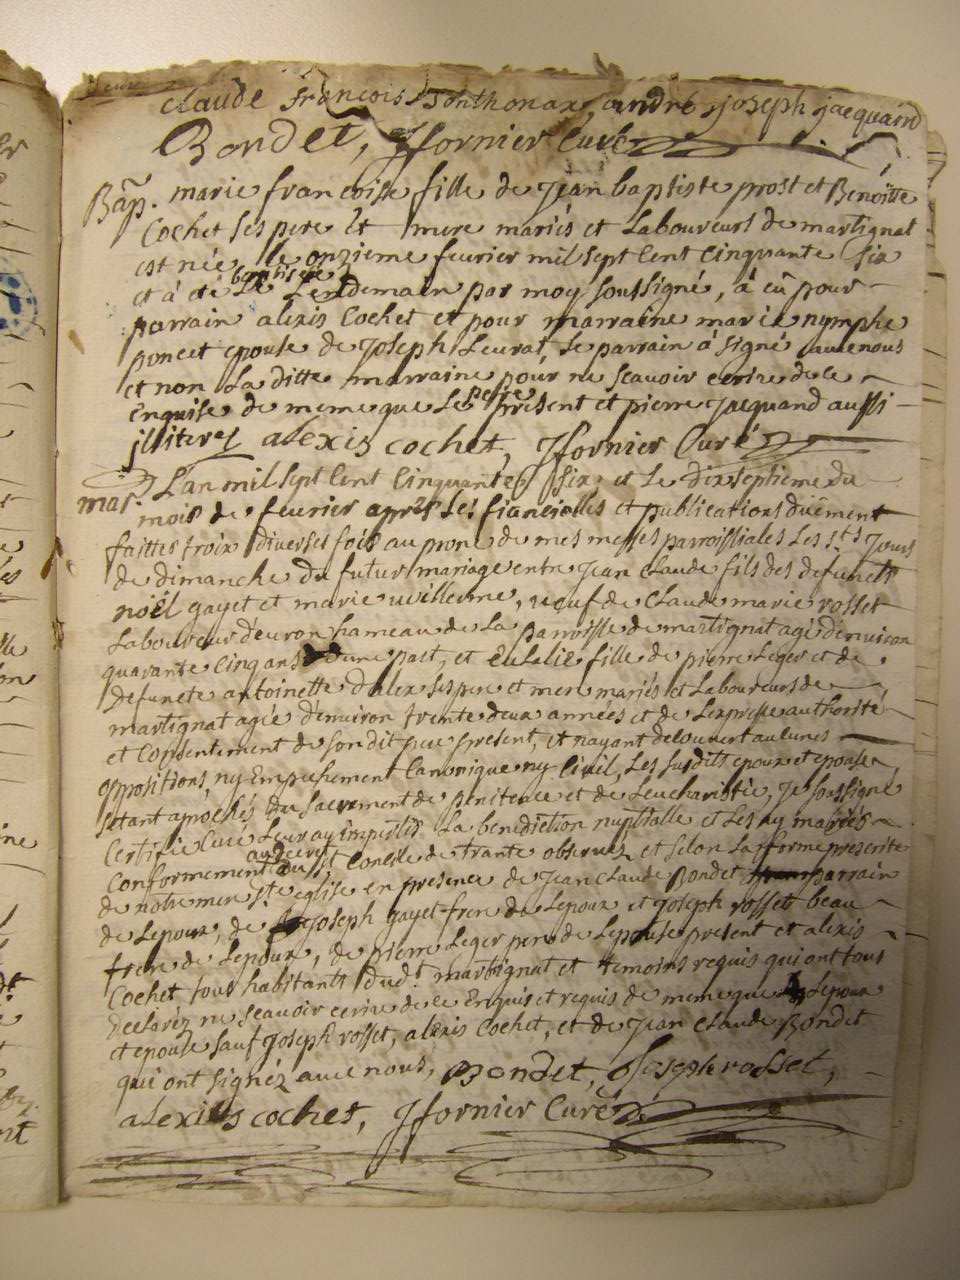 claude françois Ponthonax, andré joseph jacquand
Bondet, J fornier Curé
Bap. marie francoise fille de Jean baptiste prost et Benoitte
Cochet ses pere et mere mariés et Laboureurs de martignat
est née le onzieme fevrier mil sept Cent Cinquante six
baptisée
et à eté Le Lendemain par moy soussigné, à eû pour
parrain alexis Cochet et pour marraine marie nymphe
poncet epouse de Joseph Leurat, Le parrain à signé avec nous
et non La ditte marraine pour ne scavoir ecrire de ce
pere
Enquise de meme que Le present et pierre Jacquand aussi
jlliterez alexis cochet, J fornier Curé
mar. L'an mil sept Cent Cinquante six et Le dix septieme du
mois de fevrier après Les fiancielles et publications duëment
faittes trois diverses fois au prone de mes messes parroissiales Les sts Jours
de dimanche du futur mariage entre Jean Claude fils des defuncts
noël gayet et marie uvillerme, veuf de Claude marie rosset
Laboureur d'evron hameau de La parroisse de martignat agé d'environ
quarante Cinq ans d'une part, et Eulalie fille de pierre Leger et de
defuncte antoinette Dalex ses pere et mere mariés et Laboureurs de
martignat agée d'environ trente deux années et de L'expresse authorité
et Consentement de son dit pere present, et n'ayant decouvert aucunes
oppositions, ny Empechement Canonique ny Civil, Les susdits epoux et epouse
setant aprochés du sacrement de penitence et de Leucharistie, Je soussigné
Certifie Curé Leur ay impartis La benediction nuptialle et Les ay mariés
au decret
Conformement du st Concile de trante observé et selon La forme prescritte
de notre mere ste eglise en presence de Jean Claude Bondet parrain
de Lepoux, de Joseph gayet frere de Lepoux et joseph rosset beau
frere de Lepoux, de pierre Leger pere de Lepouse present et alexis
Cochet tous habitants dudt martignat et temoins requis qui ont tous
declaréz ne scavoir ecrire de ce Enquis et requis de meme que Lepoux
et epouse sauf joseph rosset, alexis Cochet, et de Jean Claude Bondet
qui ont signéz avec nous, Bondet, Joseph rosset,
alexis cochet, J fornier Curé